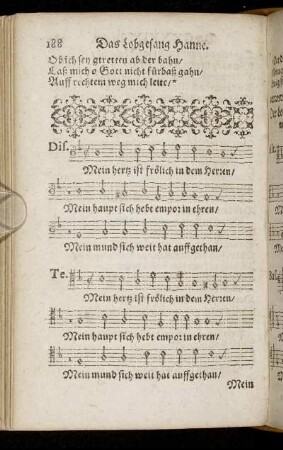 188 Das Lobgesang Hanne.
Ob ich sey gtretten ab der bahn/
Laß mich o Gott nicht fürbaß gahn/
Auff rechtem weg mich leite/
Dis.
Mein hertz ist frölich in dem Herren/
Mein haupt sich hebt empor in ehren/
Mein mund sich weit hat auffgethan/
Te.
Mein hertz ist frölich in dem Herren/
Mein haupt sich hebt empor in ehren/
Mein mund sich weit hat auffgethan/
Mein